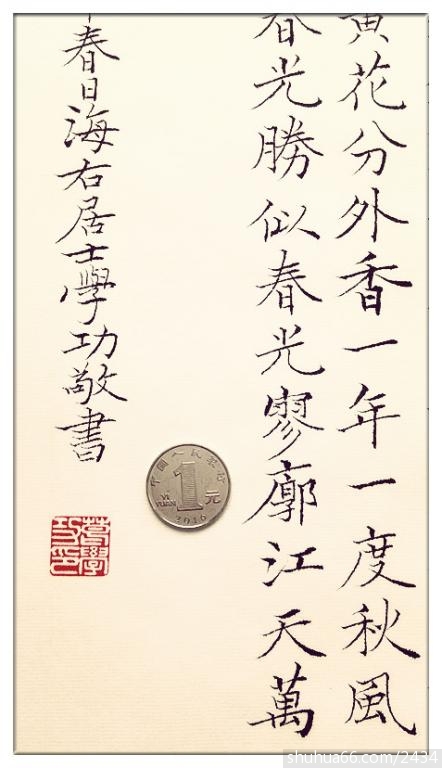 黄花分外香一年一度秋風
春光勝似春光寥廓江天萬
春日海右居士學功敬書
學功印
中国人民银行
1元
YI YUAN
2016
shuhua66.com/2434